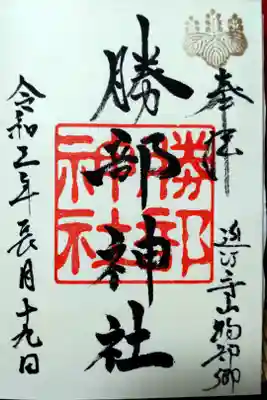 奉拝
近江守山物部郷
勝部神社
勝部
神社
令和五年長月十九日